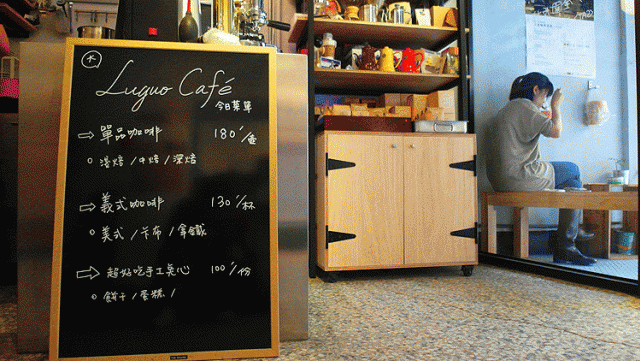 Luguo Café
今日菜單
⇨ 單品咖啡 180元/壺
○ 淺焙 / 中焙 / 深焙
⇨ 義式咖啡 130元/杯
○ 美式 / 卡布 / 拿鐵
⇨ 超好吃手工點心 100元/份
○ 餅干 / 蛋糕 /